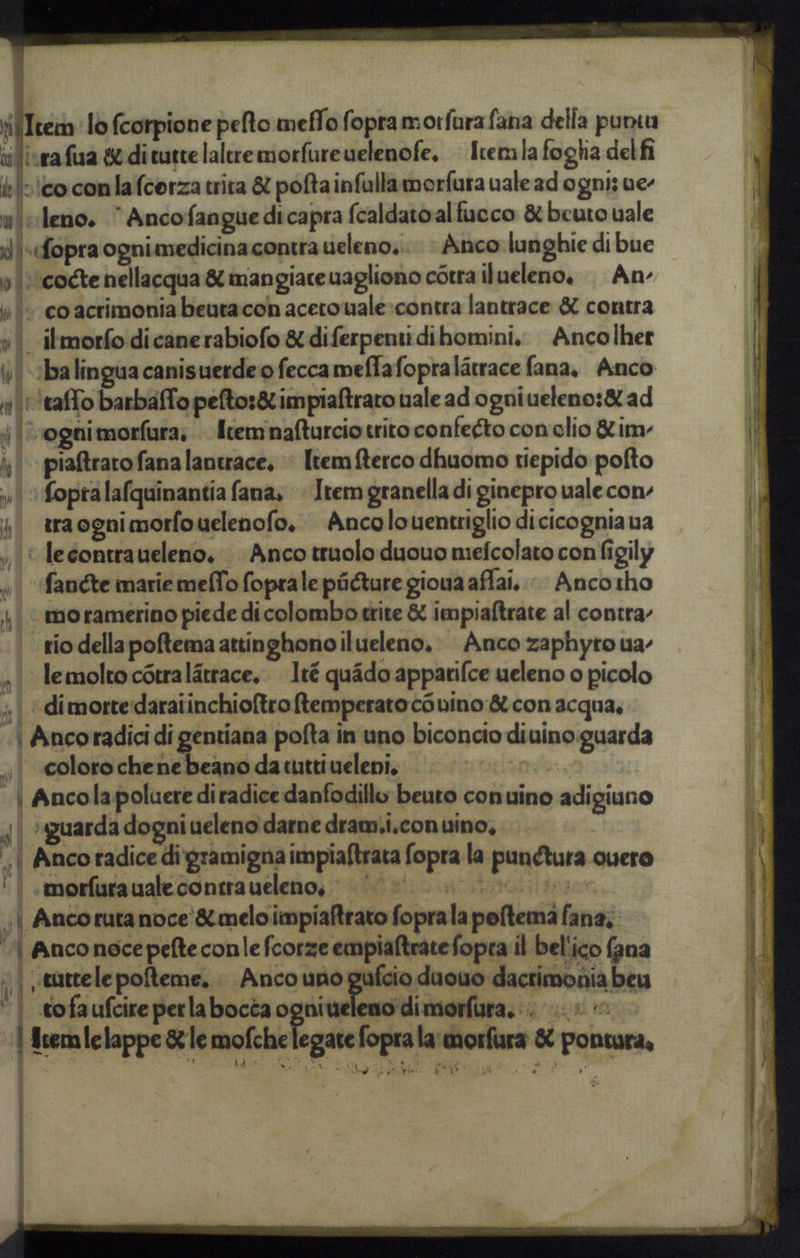 Item lo ſcorpione peſto meſſo ſopra morſura ſana della puntu
ra ſua & di tutte laltre morſure uelenoſe. Item la foglia del fi
co con la ſcorza trita & poſta inſulla morſura uale ad ogni; ue⸗
leno. Anco ſangue di capra ſcaldato al fuoco & beuto uale
ſopra ogni medicina contra ueleno. Anco lunghie di bue
cocte nellacqua & mangiate uagliono cōtra il ueleno. An⸗
co acrimonia beuta con aceto uale contra lantrace & contra
il morſo di cane rabioſo & di ſerpenti di homini. Anco lher
ba lingua canis uerde o ſecca meſſa ſopra lātrace ſana. Anco
taſſo barbaſſo peſto: & impiaſtrato uale ad ogni ueleno: & ad
ogni morſura. Item naſturcio trito confecto con olio & im⸗
piaſtrato ſana lantrace. Item ſterco dhuomo tiepido poſto
ſopra laſquinantia ſana. Item granella di ginepro uale con⸗
tra ogni morſo uelenoſo. Anco lo uentriglio di cicognia ua
le contra ueleno. Anco truolo duouo meſcolato con ſigily
ſancte marie meſſo ſopra le pūcture gioua aſſai. Anco tho
mo ramerino piede di colombo trite & impiaſtrate al contra⸗
rio della poſtema attinghono il ueleno. Anco zaphyro ua⸗
le molto cōtra lātrace. Itē quādo appariſce ueleno o picolo
di morte darai inchioſtro ſtemperato cō uino & con acqua.
Anco radici di gentiana poſta in uno biconcio di uino guarda
coloro che ne beano da tutti ueleni.
Anco la poluere di radice danſodillo beuto con uino adigiuno
guarda dogni ueleno darne dram.i.con uino.
Anco radice di gramigna impiaſtrata ſopra la punctura ouero
morſura uale contra ueleno.
Anco ruta noce & melo impiaſtrato ſopra la poſtema ſana.
Anco noce peſte con le ſcorze empiaſtrate ſopra il bel'ico ſana
tutte le poſteme. Anco uno guſcio duouo dacrimonia beu
to fa uſcire per la bocca ogni ueleno di morſura.
Item le lappe & le moſche legate ſopra la morſura & pontura.